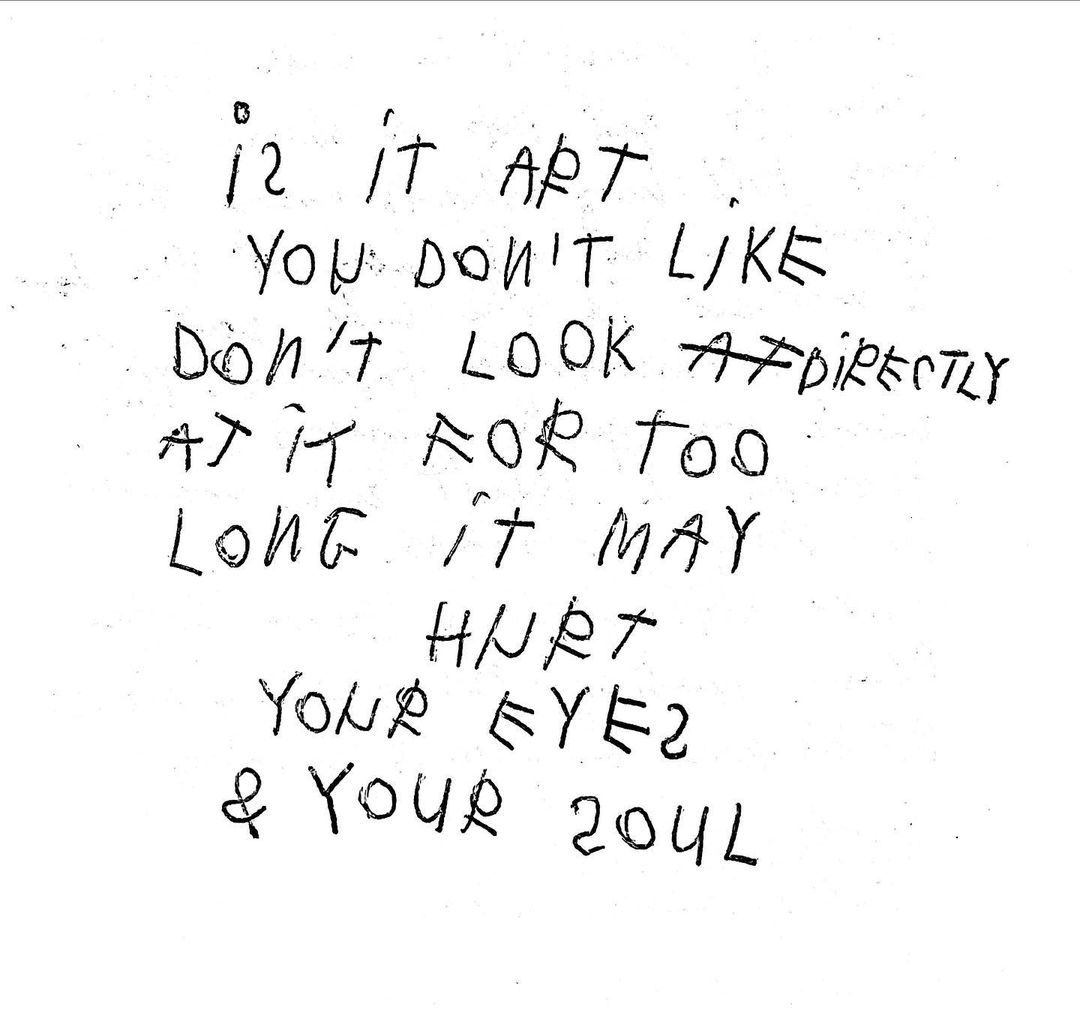 iS iT ART
YOU DON'T LiKE
DON'T LOOK AT DiRECTLY
AT iT FOR TOO
LONG iT MAY
HURT
YOUR EYES
& YOUR SOUL